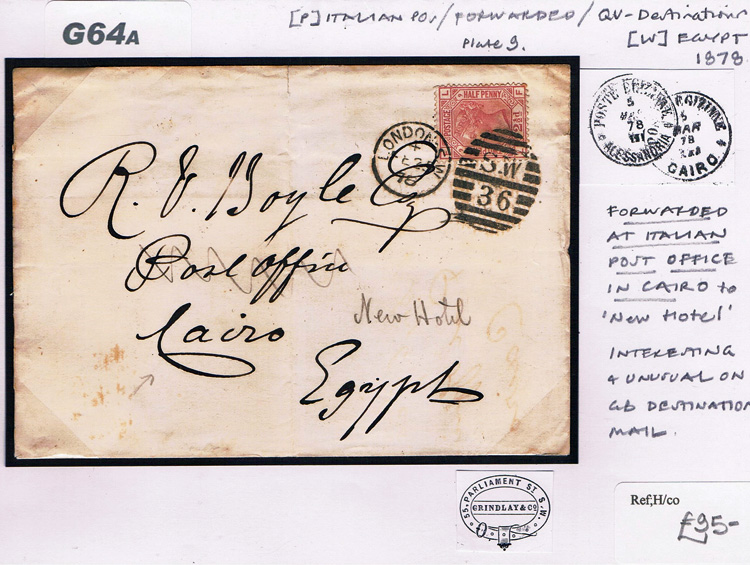 G64A
[P] ITALIAN POs / FORWARDED / QV-Destinations
Plate 9.
[W] EGYPT
1878
L HALF PENNY F
POSTAGE
LONDON S.W
S.W
36
R. V. Boyle Esq
Post Office
Cairo
New Hotel
Egypt
POSTE EGIZIANE
5
MAR
78
ALESSANDRIA
5
MAR
78
CAIRO
FORWARDED
AT ITALIAN
POST OFFICE
IN CAIRO to
'New Hotel'
INTERESTING
& UNUSUAL ON
GB DESTINATION
MAIL.
55, PARLIAMENT ST. S.W.
GRINDLAY & Co
Ref;H/co
£95-